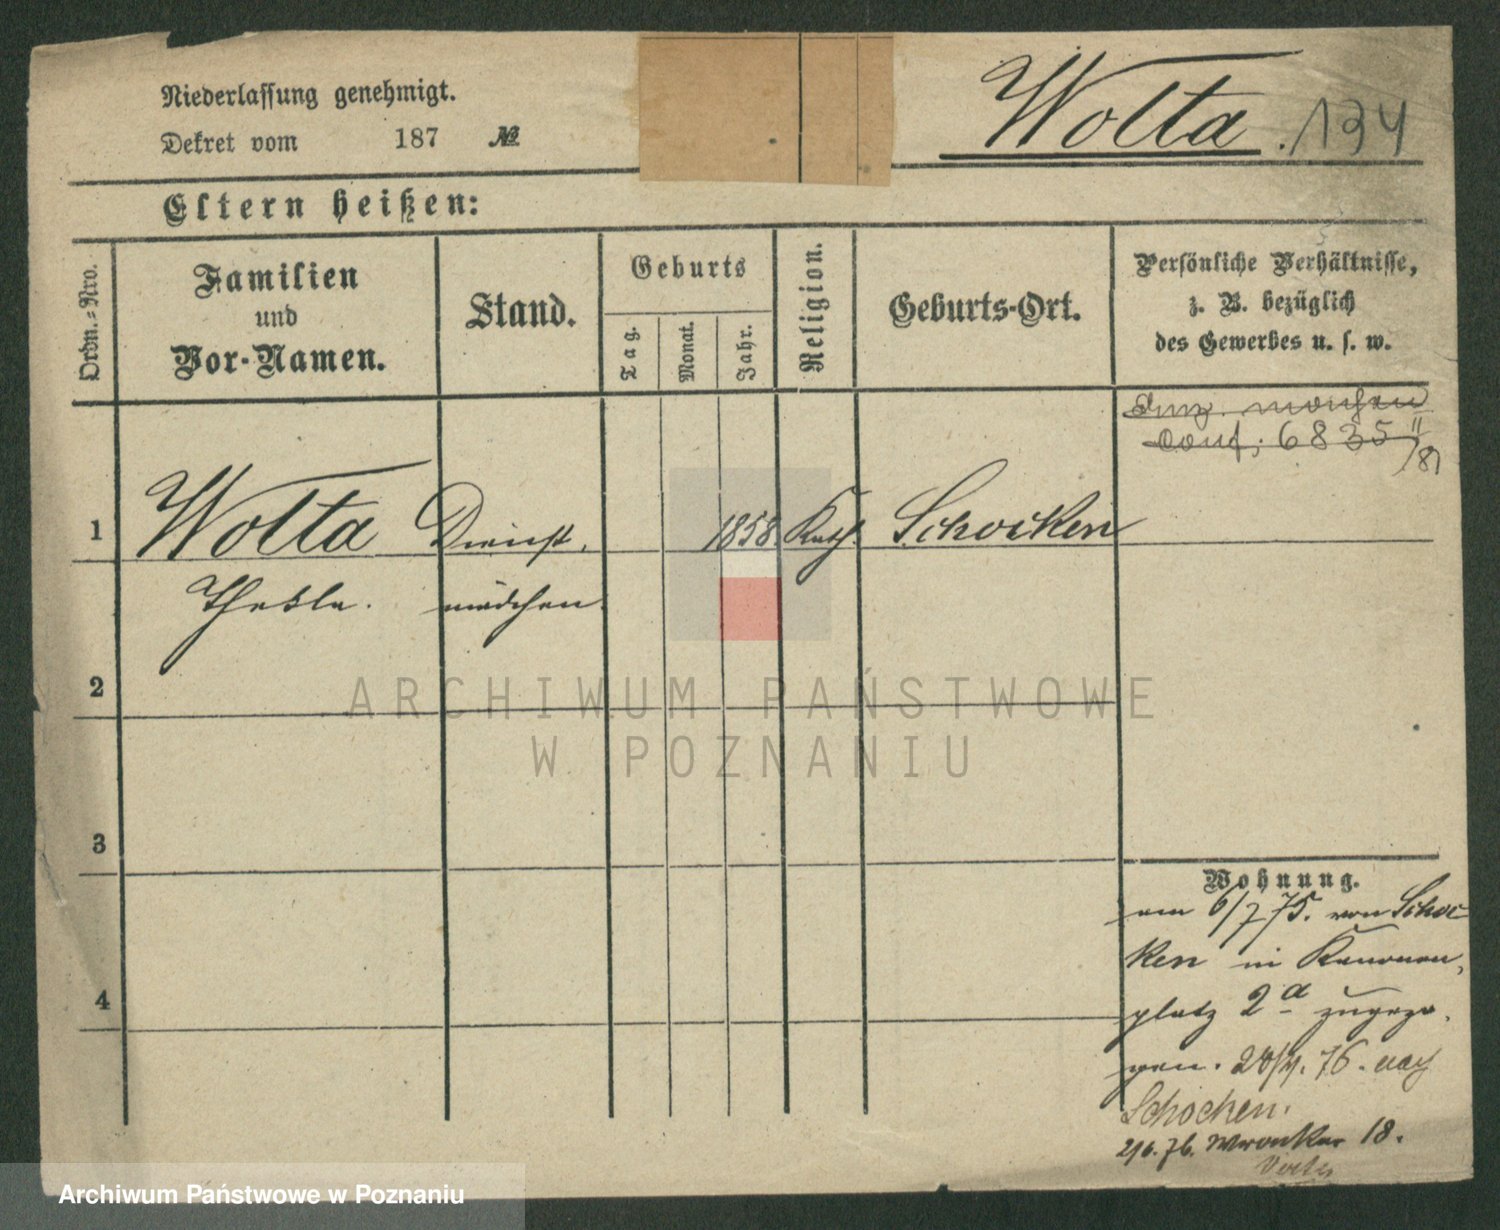 Niederlassung genehmigt.
Dekret vom 187 №
Wolta 134
Eltern heißen:
Ordn.=Nro.
Familien
und
Vor-Namen.
Stand.
Geburts
Tag.
Monat.
Jahr.
Religion.
Geburts-Ort.
Persönliche Verhältnisse,
z. B. bezüglich
des Gewerbes u. s. w.
6835 II
/81
1 Wolta Dienst- 1858 Kath. Schocken
Thekla. mädchen.
2
3
4
Wohnung.
am 6/7 75. von Schoc
ken in Kanonen-
platz 2a zugezo-
gen. 76. nach
Schocken.
2/6. 76. Wronker 18.
ARCHIWUM PAŃSTWOWE
W POZNANIU
Archiwum Państwowe w Poznaniu